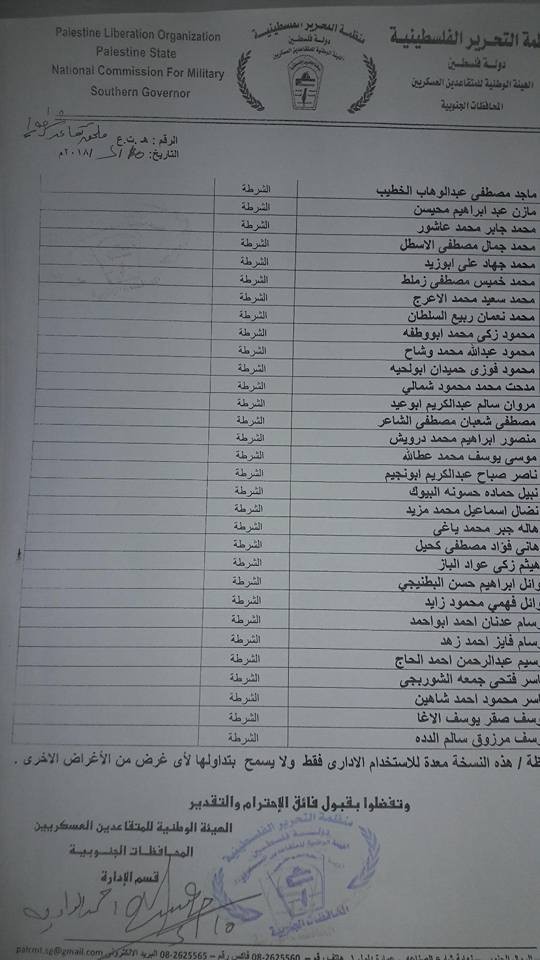 Palestine Liberation Organization
Palestine State
National Commission For Military
Southern Governor
منظمة التحرير الفلسطينية
دولة فلسطين
الهيئة الوطنية للمتقاعدين العسكريين
المحافظات الجنوبية
منظمة التحرير الفلسطينية
دولة فلسطين
الهيئة الوطنية للمتقاعدين العسكريين
الرقم : هـ.ت.ع
التاريخ: /٢٠١٨م
ماجد مصطفى عبدالوهاب الخطيب الشرطة
مازن عبد ابراهيم محيسن الشرطة
محمد جابر محمد عاشور الشرطة
محمد جمال مصطفى الاسطل الشرطة
محمد جهاد على ابوزيد الشرطة
محمد خميس مصطفى زملط الشرطة
محمد سعيد محمد الاعرج الشرطة
محمد نعمان ربيع السلطان الشرطة
محمود زكي محمد ابووطفه الشرطة
محمود عبدالله محمد وشاح الشرطة
محمود فوزى حميدان ابولحيه الشرطة
مدحت محمد محمود شمالي الشرطة
مروان سالم عبدالكريم ابوعيد الشرطة
مصطفى شعبان مصطفى الشاعر الشرطة
منصور ابراهيم محمد درويش الشرطة
موسى يوسف محمد عطاالله الشرطة
ناصر صباح عبدالكريم ابونجيم الشرطة
نبيل حماده حسونه البيوك الشرطة
نضال اسماعيل محمد مزيد الشرطة
هاله جبر محمد ياغي الشرطة
هانى فؤاد مصطفى كحيل الشرطة
هيثم زكى عواد الباز الشرطة
وائل ابراهيم حسن البطنيجي الشرطة
وائل فهمي محمود زايد الشرطة
وسام عدنان احمد ابواحمد الشرطة
وسام فايز احمد زهد الشرطة
وسيم عبدالرحمن احمد الحاج الشرطة
اسر فتحى جمعه الشوربجى الشرطة
اسر محمود احمد شاهين الشرطة
وسف صقر يوسف الاغا الشرطة
وسف مرزوق سالم الدده الشرطة
ظة / هذه النسخة معدة للاستخدام الادارى فقط ولا يسمح بتداولها لأى غرض من الأغراض الاخرى .
وتفضلوا بقبول فائق الإحترام والتقدير
الهيئة الوطنية للمتقاعدين العسكريين
المحافظات الجنوبية
قسم الإدارة
منظمة التحرير الفلسطينية
دولة فلسطين
المحافظات الجنوبية
08-2625560 فاكس رقم – 08-2625565 البريد الالكتروني palcmt.sg@gmail.com